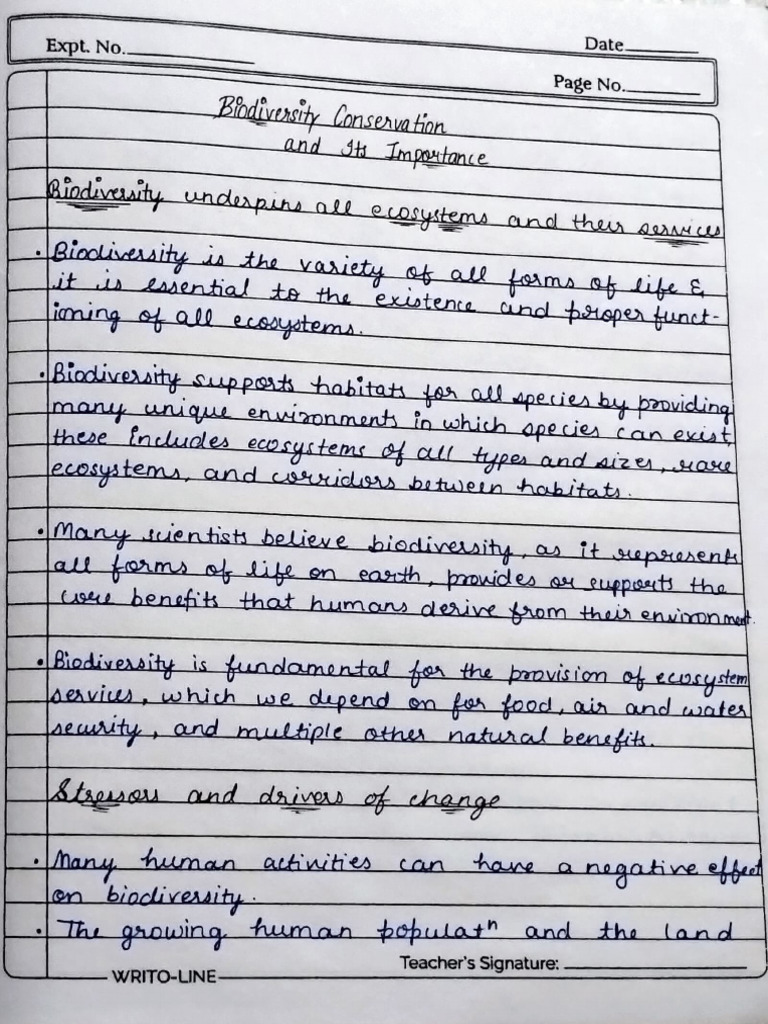 Expt. No.
Date
Page No.
Biodiversity Conservation
and Its Importance
Biodiversity underpins all ecosystems and their services
• Biodiversity is the variety of all forms of life &
it is essential to the existence and proper funct-
ioning of all ecosystems.
• Biodiversity supports habitats for all species by providing
many unique environments in which species can exist,
these includes ecosystems of all types and sizes, rare
ecosystems, and corridors between habitats.
• Many scientists believe biodiversity, as it represents
all forms of life on earth, provides or supports the
core benefits that humans derive from their environment.
• Biodiversity is fundamental for the provision of ecosystem
services, which we depend on for food, air and water
security, and multiple other natural benefits.
Stressors and drivers of change
• Many human activities can have a negative effect
on biodiversity.
• The growing human populatⁿ and the land
Teacher's Signature:
WRITO-LINE